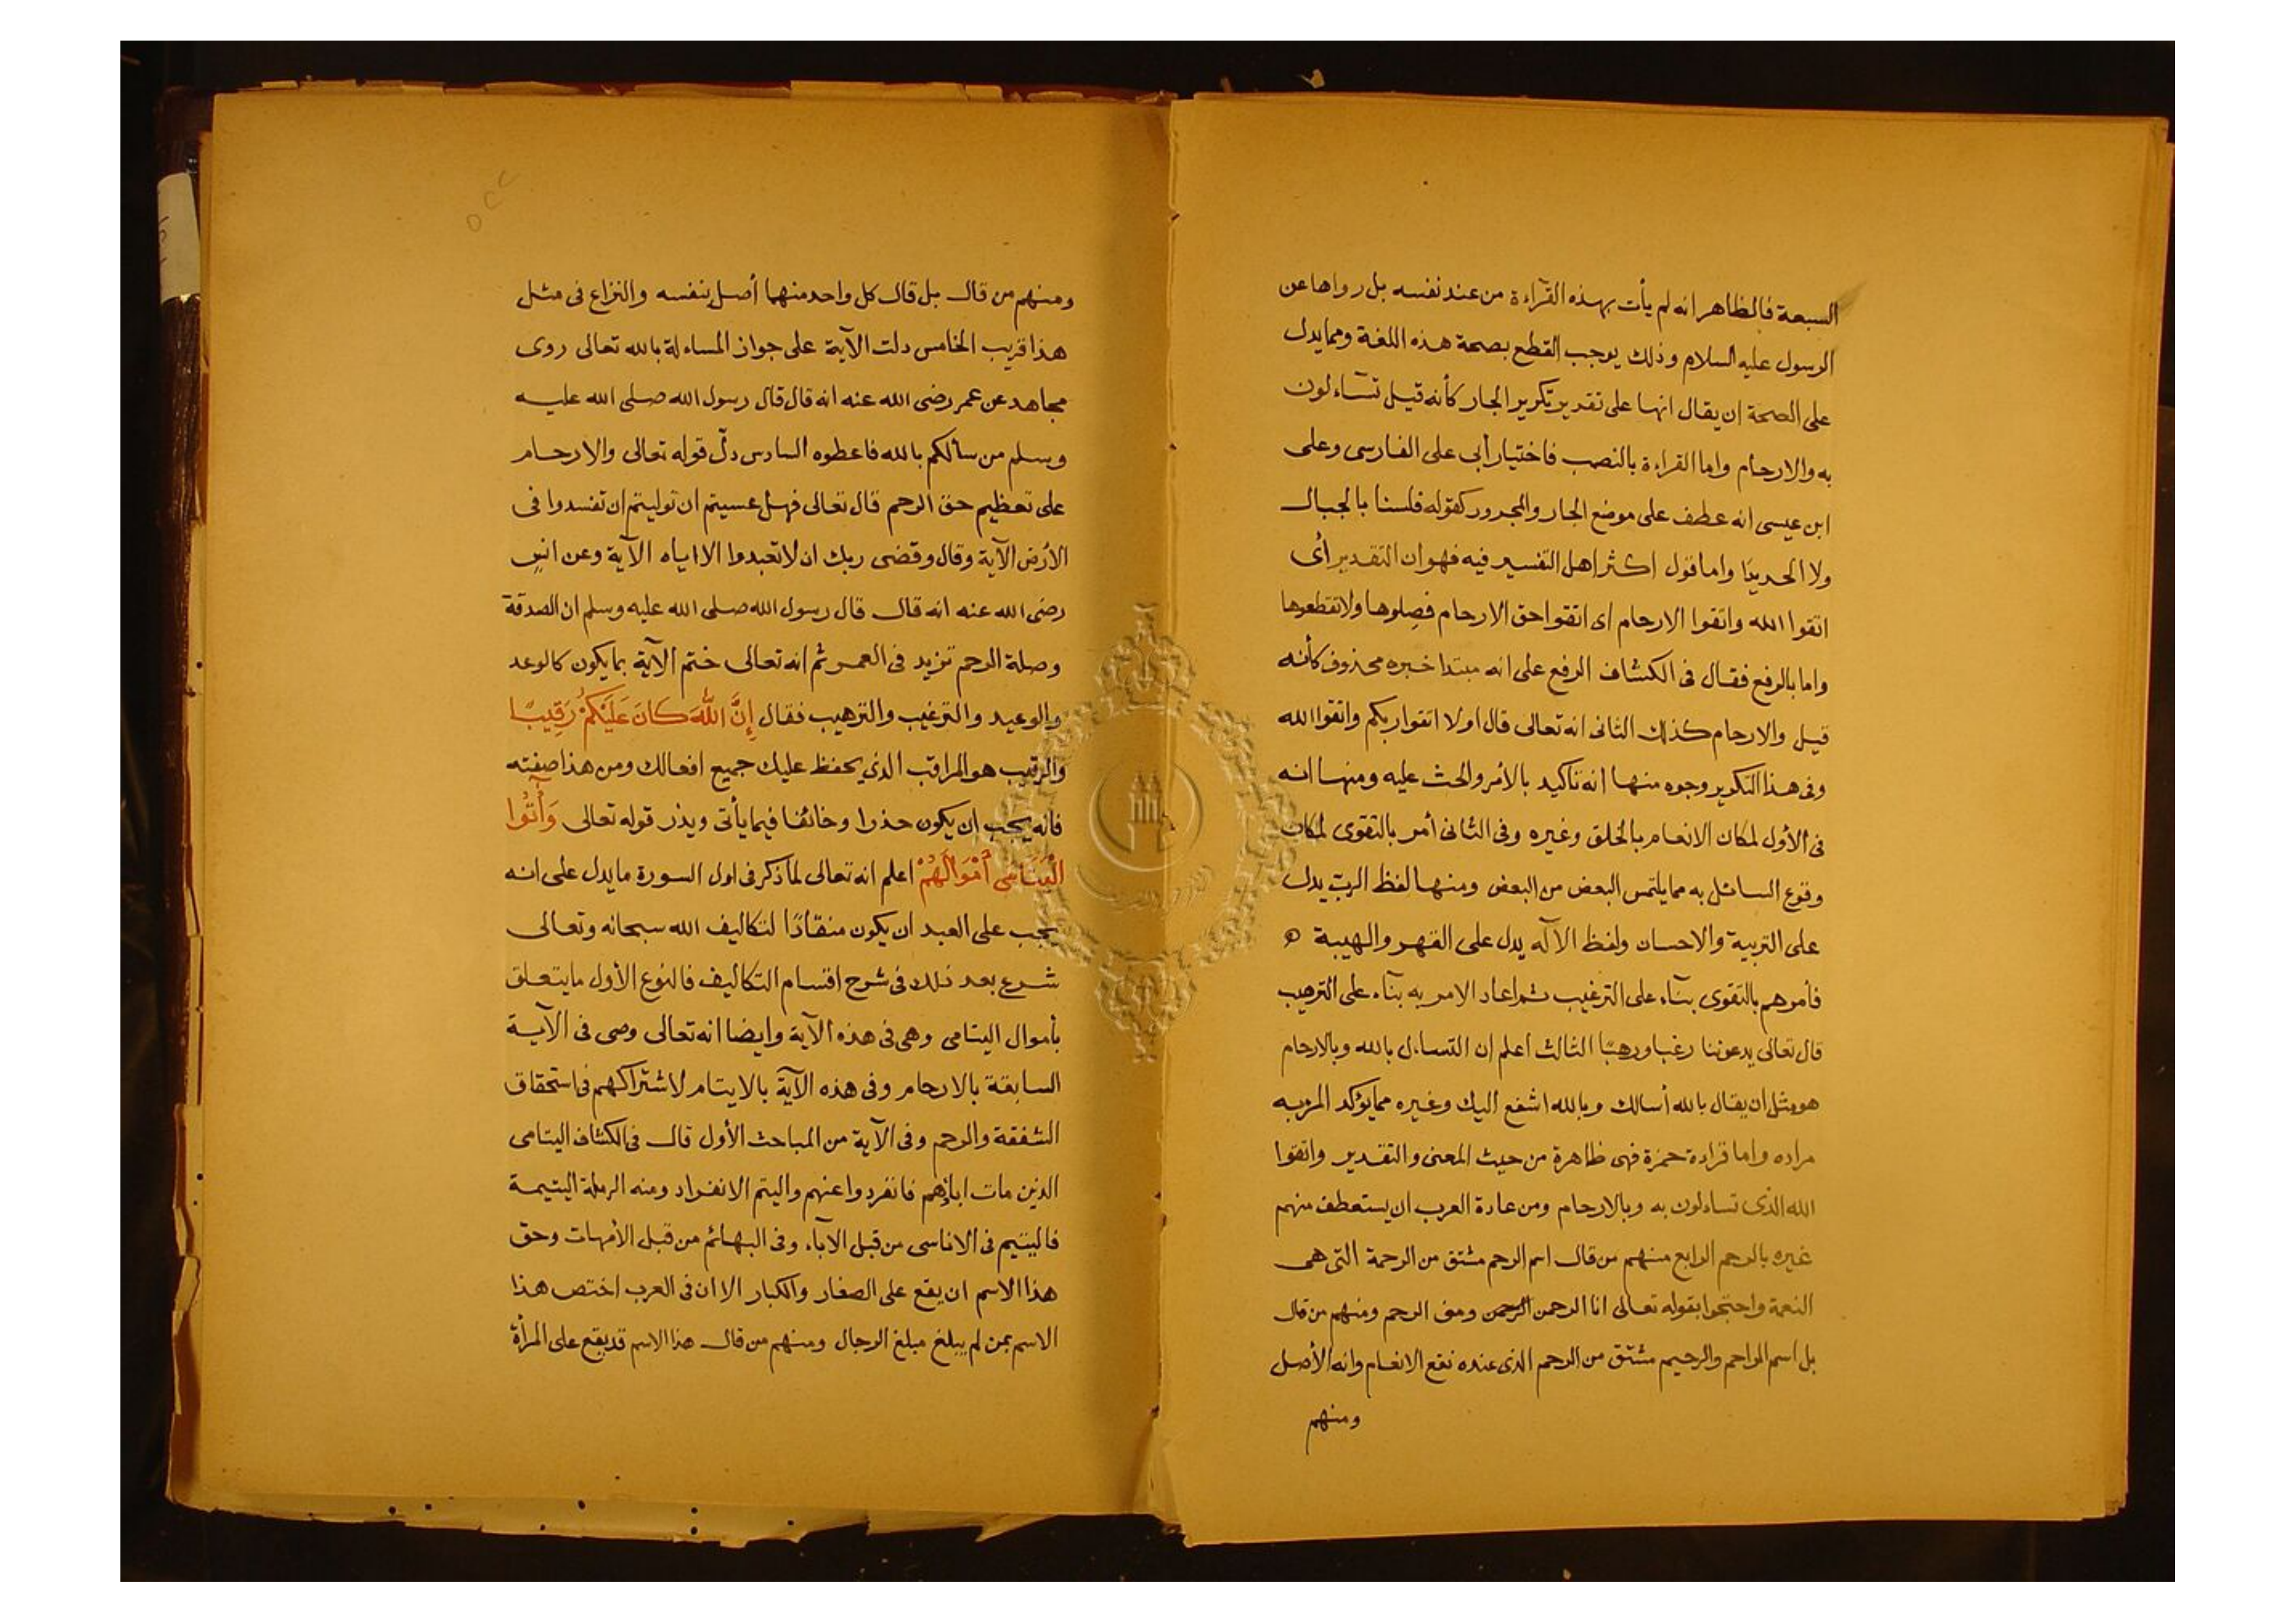 السبعة فالظاهر انه لم يأت بهذه القرآءة من عند نفسه بل رواها عن
الرسول عليه السلام وذلك يوجب القطع بصحة هذه اللغة ومما يدل
على الصحة ان يقال انها على تقدير تكرير الجار كأنه قيل تسآءلون
به والارحام واما القراءة بالنصب فاختيار أبى على الفارسى وعلى
ابن عيسى انه عطف على موضع الجار والمجرور كقوله فلسنا بالجبال
ولا الحديدا واما قول اكثر اهل التفسير فيه فهو ان التقدير أى
اتقوا الله واتقوا الارحام اى اتقوا حق الارحام فصلوها ولا تقطعوها
واما بالرفع فقال فى الكشاف الرفع على انه مبتدا خبره محذوف كأنه
قيل والارحام كذلك الثانى انه تعالى قال اولا اتقوا ربكم واتقوا الله
وفى هذا التكرير وجوه منها انه تاكيد بالأمر والحث عليه ومنها انه
فى الأول لمكان الانعام بالخلق وغيره وفى الثانى أمر بالتقوى لمكان
وقوع السائل به مما يلتمس البعض من البعض ومنها لفظ الرب يدل
على التربية والاحسان ولفظ الآله يدل على القهر والهيبة
فأمرهم بالتقوى بنآء على الترغيب ثم اعاد الامر به بنآء على الترهيب
قال تعالى يدعوننا رغبا ورهبًا الثالث اعلم ان التساءل بالله وبالارحام
هو مثل ان يقال بالله أسالك وبالله اشفع اليك وغيره مما يؤكد المرء به
مراده واما قراءة حمزة فهى ظاهرة من حيث المعنى والتقدير واتقوا
الله الذى تساءلون به وبالارحام ومن عادة العرب ان يستعطف منهم
غيره بالرحم الرابع منهم من قال اسم الرحم مشتق من الرحمة التى هى
النعمة واحتجوا بقوله تعالى انا الرحمن الرحمن ومنى الرحم ومنهم من قال
بل اسم الراحم والرحيم مشتق من الرحم الذى عنده نقع الانعام وانه الأصل
ومنهم
ومنهم من قال بل قال كل واحد منهما أصل بنفسه والنزاع فى مثل
هذا قريب الخامس دلت الآية على جواز المساءلة بالله تعالى روى
مجاهد عن عمر رضى الله عنه انه قال قال رسول الله صلى الله عليه
وسلم من سألكم بالله فاعطوه السادس دل قوله تعالى والارحام
على تعظيم حق الرحم قال تعالى فهل عسيتم ان توليتم ان تفسدوا فى
الأرض الآية وقال وقضى ربك ان لا تعبدوا الا اياه الآية وعن انس
رضى الله عنه انه قال قال رسول الله صلى الله عليه وسلم ان الصدقة
وصلة الرحم تزيد فى العمر ثم انه تعالى ختم الآية بما يكون كالوعد
والوعيد والترغيب والترهيب فقال إِنَّ اللَّهَ كَانَ عَلَيْكُمْ رَقِيبًا
والرقيب هو المراقب الذى يحفظ عليك جميع افعالك ومن هذا صفته
فانه يجب ان يكون حذرا وخائفا فيما يأتى ويذر قوله تعالى وَآتُوا
الْيَتَامَى أَمْوَالَهُمْ اعلم انه تعالى لما ذكر فى اول السورة ما يدل على انه
يجب على العبد ان يكون منقادًا لتكاليف الله سبحانه وتعالى
شرع بعد ذلك فى شرح اقسام التكاليف فالنوع الأول ما يتعلق
بأموال اليتامى وهى فى هذه الآية وايضا انه تعالى وصى فى الآية
السابقة بالارحام وفى هذه الآية بالايتام لاشتراكهم فى استحقاق
الشفقة والرحم وفى الآية من المباحث الأول قال فى الكشاف اليتامى
الذين مات اباؤهم فانفردوا عنهم واليتم الانفراد ومنه الرملة اليتيمة
فاليتيم فى الاناسى من قبل الآباء وفى البهائم من قبل الأمهات وحق
هذا الاسم ان يقع على الصغار والكبار الا ان فى العرب اختص هذا
الاسم بمن لم يبلغ مبلغ الرجال ومنهم من قال هذا الاسم قد يقع على المرأة